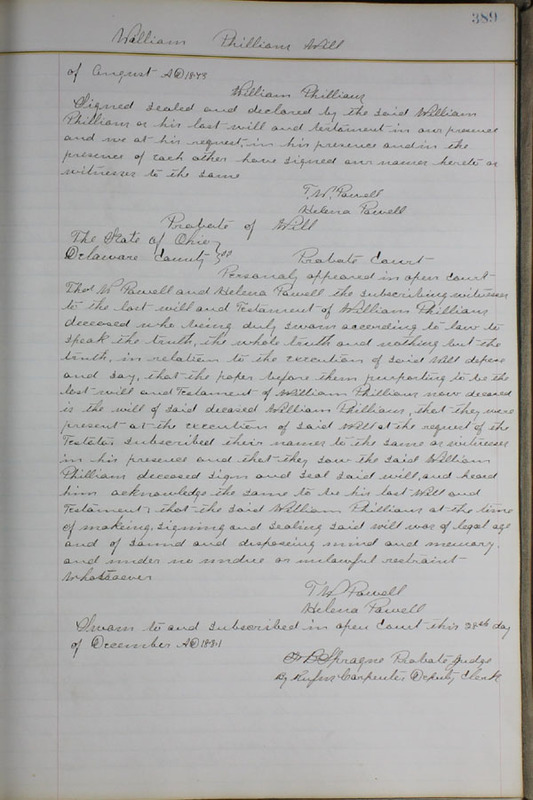 389
William Phillians Will
of August AD 1873
William Phillians
Signed sealed and declared by the said William
Phillians as his last will and testament in our presence
and we at his request, in his presence and in the
presence of each other have signed our names hereto as
witnesses to the same
T. W. Powell
Helena Powell
Probate of Will
The State of Ohio
Delaware County } ss Probate Court
Personaly appeared in open Court
Thos W Powell and Helena Powell the subscribing witnesses
to the last will and Testament of William Phillians
deceased who being duly sworn according to law to
speak the truth, the whole truth and nothing but the
truth, in relation to the execution of said Will depose
and say, that the paper before them purporting to be the
last will and Testament of William Phillians now deceased
is the will of said deceased William Phillians, that they were
present at the execution of said Will at the request of the
Testator subscribed their names to the same as witnesses
in his presence and that they saw the said William
Phillians deceased sign and seal said will, and heard
him acknowledge the same to be his last Will and
Testament, that the said William Phillians at the time
of makeing, signing and sealing said will was of legal age
and of sound and disposing mind and memory.
and under no undue or unlawful restraint
Whatsoever
T W Powell
Helena Powell
Sworn to and subscribed in open Court this 28th day
of December AD 1881
F B Sprague Probate Judge
By Rufus Carpenter Deputy Clerk